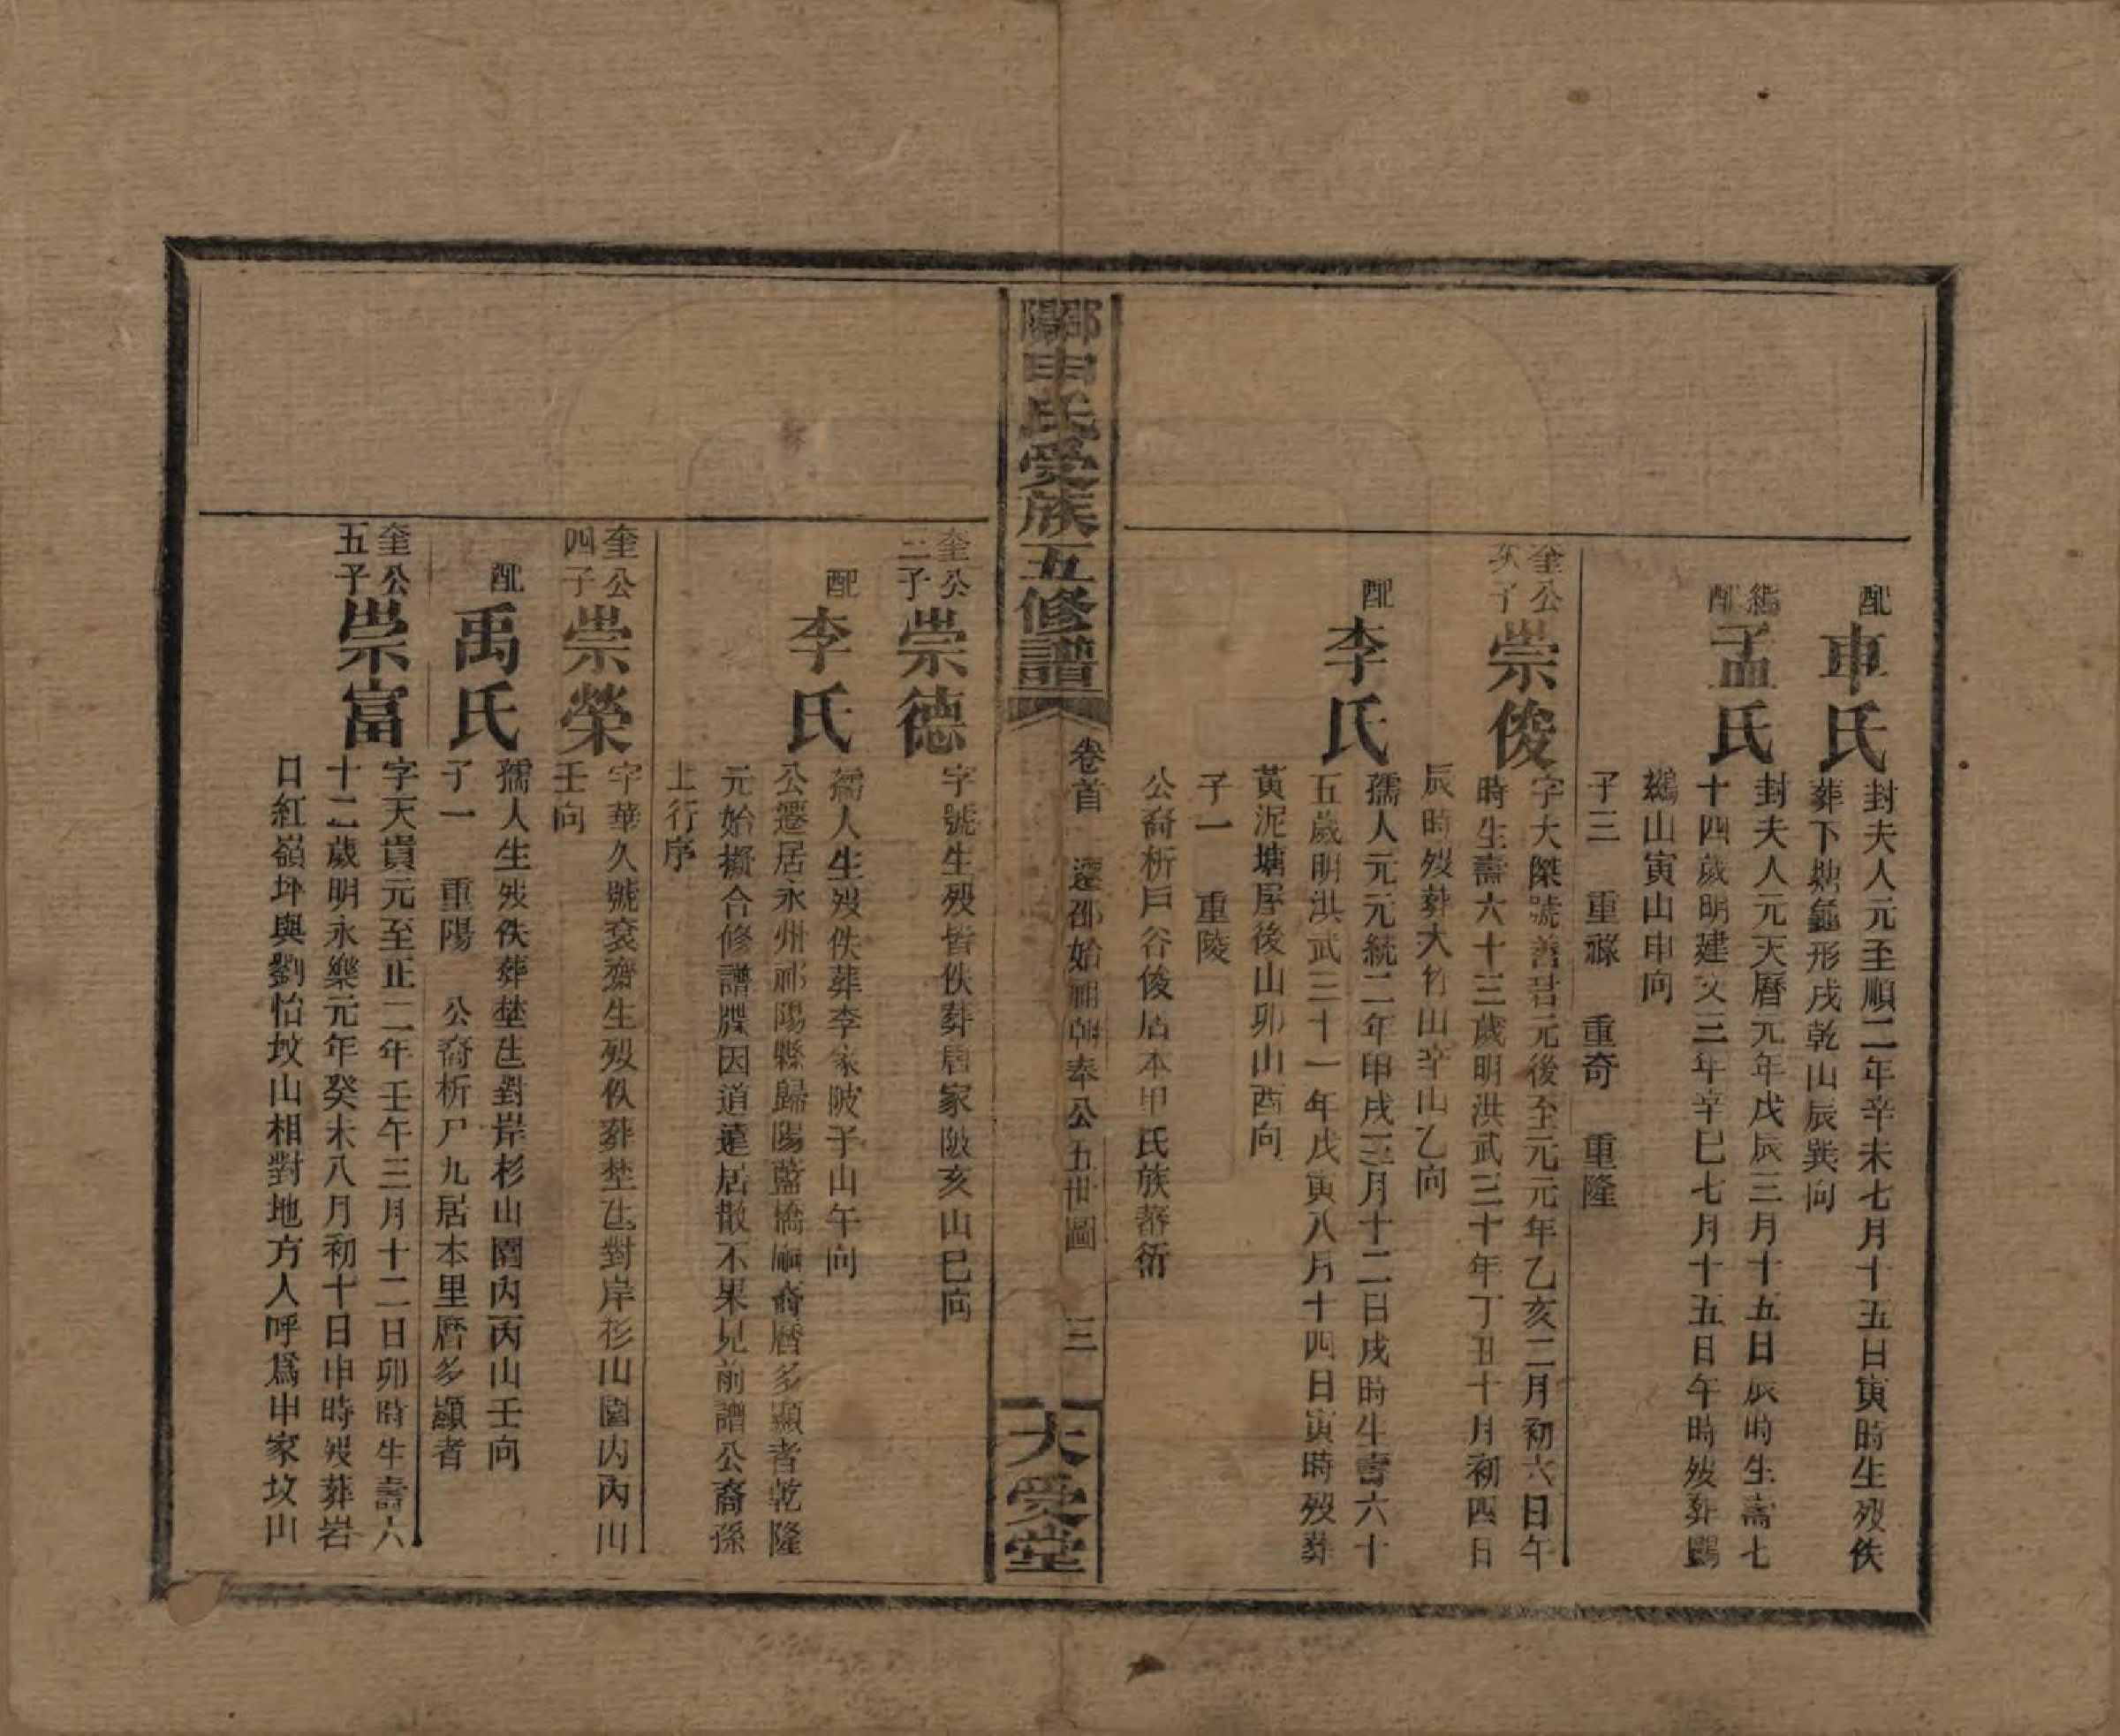 配
車氏
封夫人元至順二年辛未七月十五日寅時生歿佚
葬下塘龜形戌乾山辰巽向
繼配
孟氏
封夫人元天曆元年戊辰三月十五日辰時生壽七
十四歲明建文三年辛巳七月十五日午時歿葬鸕
鷀山寅山申向
子三 重祿 重奇 重隆
奎公次子
崇俊
字大傑號善君元後至元元年乙亥二月初六日午
時生壽六十三歲明洪武三十年丁丑十月初四日
辰時歿葬大竹山辛山乙向
配
李氏
孺人元元統二年甲戌三月十二日戌時生壽六十
五歲明洪武三十一年戊寅八月十四日寅時歿葬
黃泥塘屋後山卯山酉向
子一 重陵
公裔析戶谷俊居本甲氏族蕃衍
邵陽申氏受族五修譜
卷首 遷邵始祖朝奉公五世圖 三
大受堂
奎公三子
崇德
字號生歿皆佚葬唐家陂亥山巳向
配
李氏
孺人生歿佚葬李家陂子山午向
公遷居永州祁陽縣歸陽藍橋嗣裔曆多顯者乾隆
元始擬合修譜牒因道遠居散不果見前譜公裔孫
上行序
奎公四子
崇榮
字華久號袞齋生歿佚葬埜㐌對岸杉山園內丙山
壬向
配
禹氏
孺人生歿佚葬埜㐌對岸杉山園內丙山壬向
子一 重陽 公裔析戶九居本里曆多顯者
奎公五子
崇富
字天貴元至正二年壬午三月十二日卯時生壽六
十二歲明永樂元年癸未八月初十日申時歿葬岩
口紅嶺坪與劉怡坟山相對地方人呼爲申家坟山